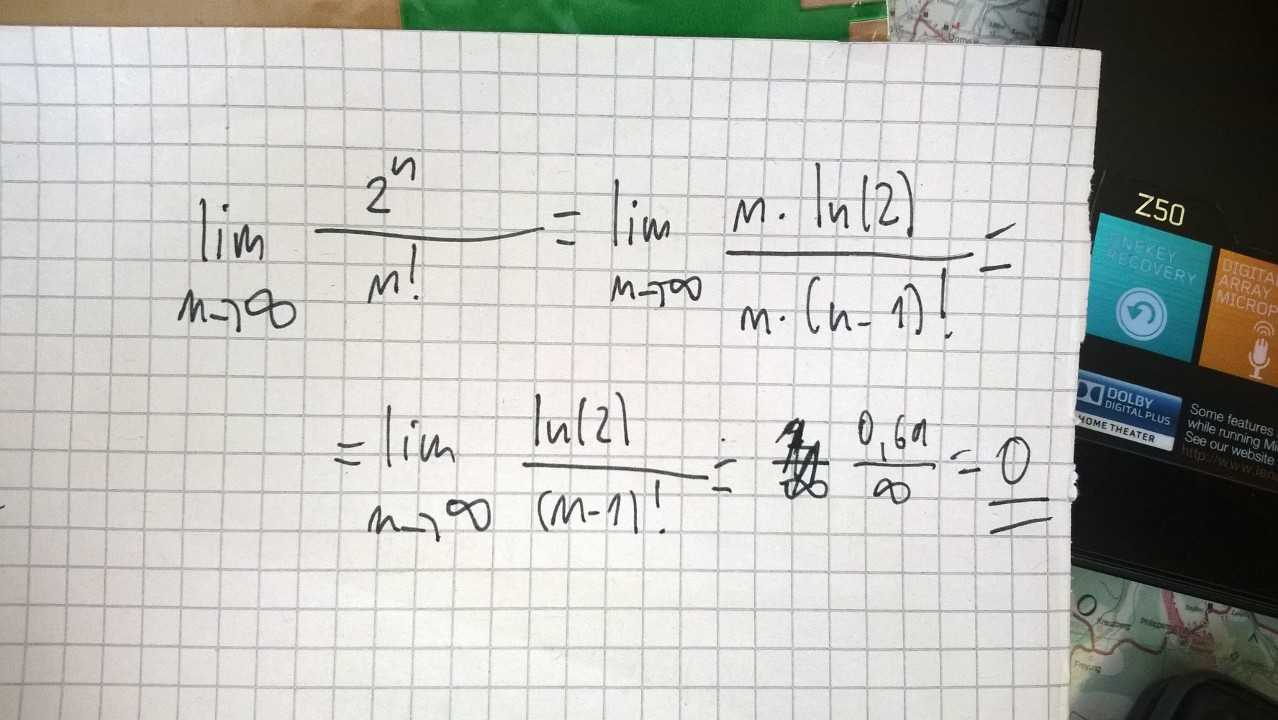 lim n→∞ 2^n / n! = lim n→∞ n · ln(2) / n · (n-1)! =
= lim n→∞ ln(2) / (n-1)! = 0,69 / ∞ = 0
Z50
ONEKEY RECOVERY
DIGITAL ARRAY MICROP
DOLBY
DIGITAL PLUS
HOME THEATER
Some features
while running Mi
See our website
Freyung